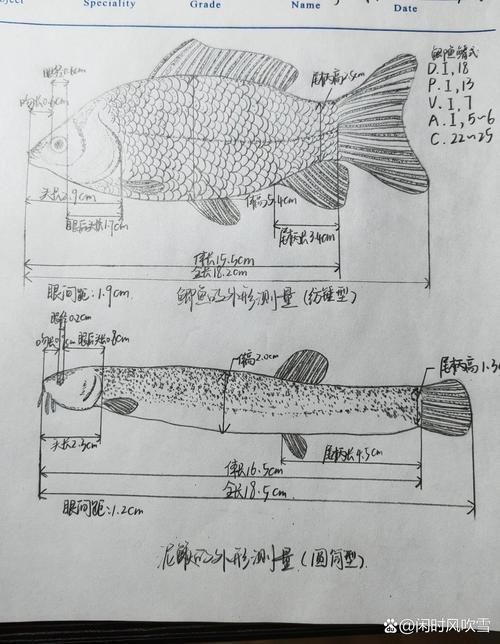 Speciality Grade Name Date
鲫鱼鳍式
D.I,18
P.I,13
V.I,7
A.I,5~6
C.22~25
尾柄高2.5cm
眼径0.6cm
吻长0.6cm
头长2.9cm
眼后头长1.7cm
体高5.4cm
尾柄长3.4cm
体长15.5cm
全长18.2cm
眼间距:1.9cm
鲫鱼的外形测量(纺锤型)
眼径0.2cm
眼后头长0.8cm
体高2.0cm
尾柄高1.3
头长2.3cm
尾柄长4.5cm
体长16.5cm
全长18.5cm
眼间距:1.2cm
泥鳅的外形测量(圆筒型)
Baidu百科 @闲时风吹雪